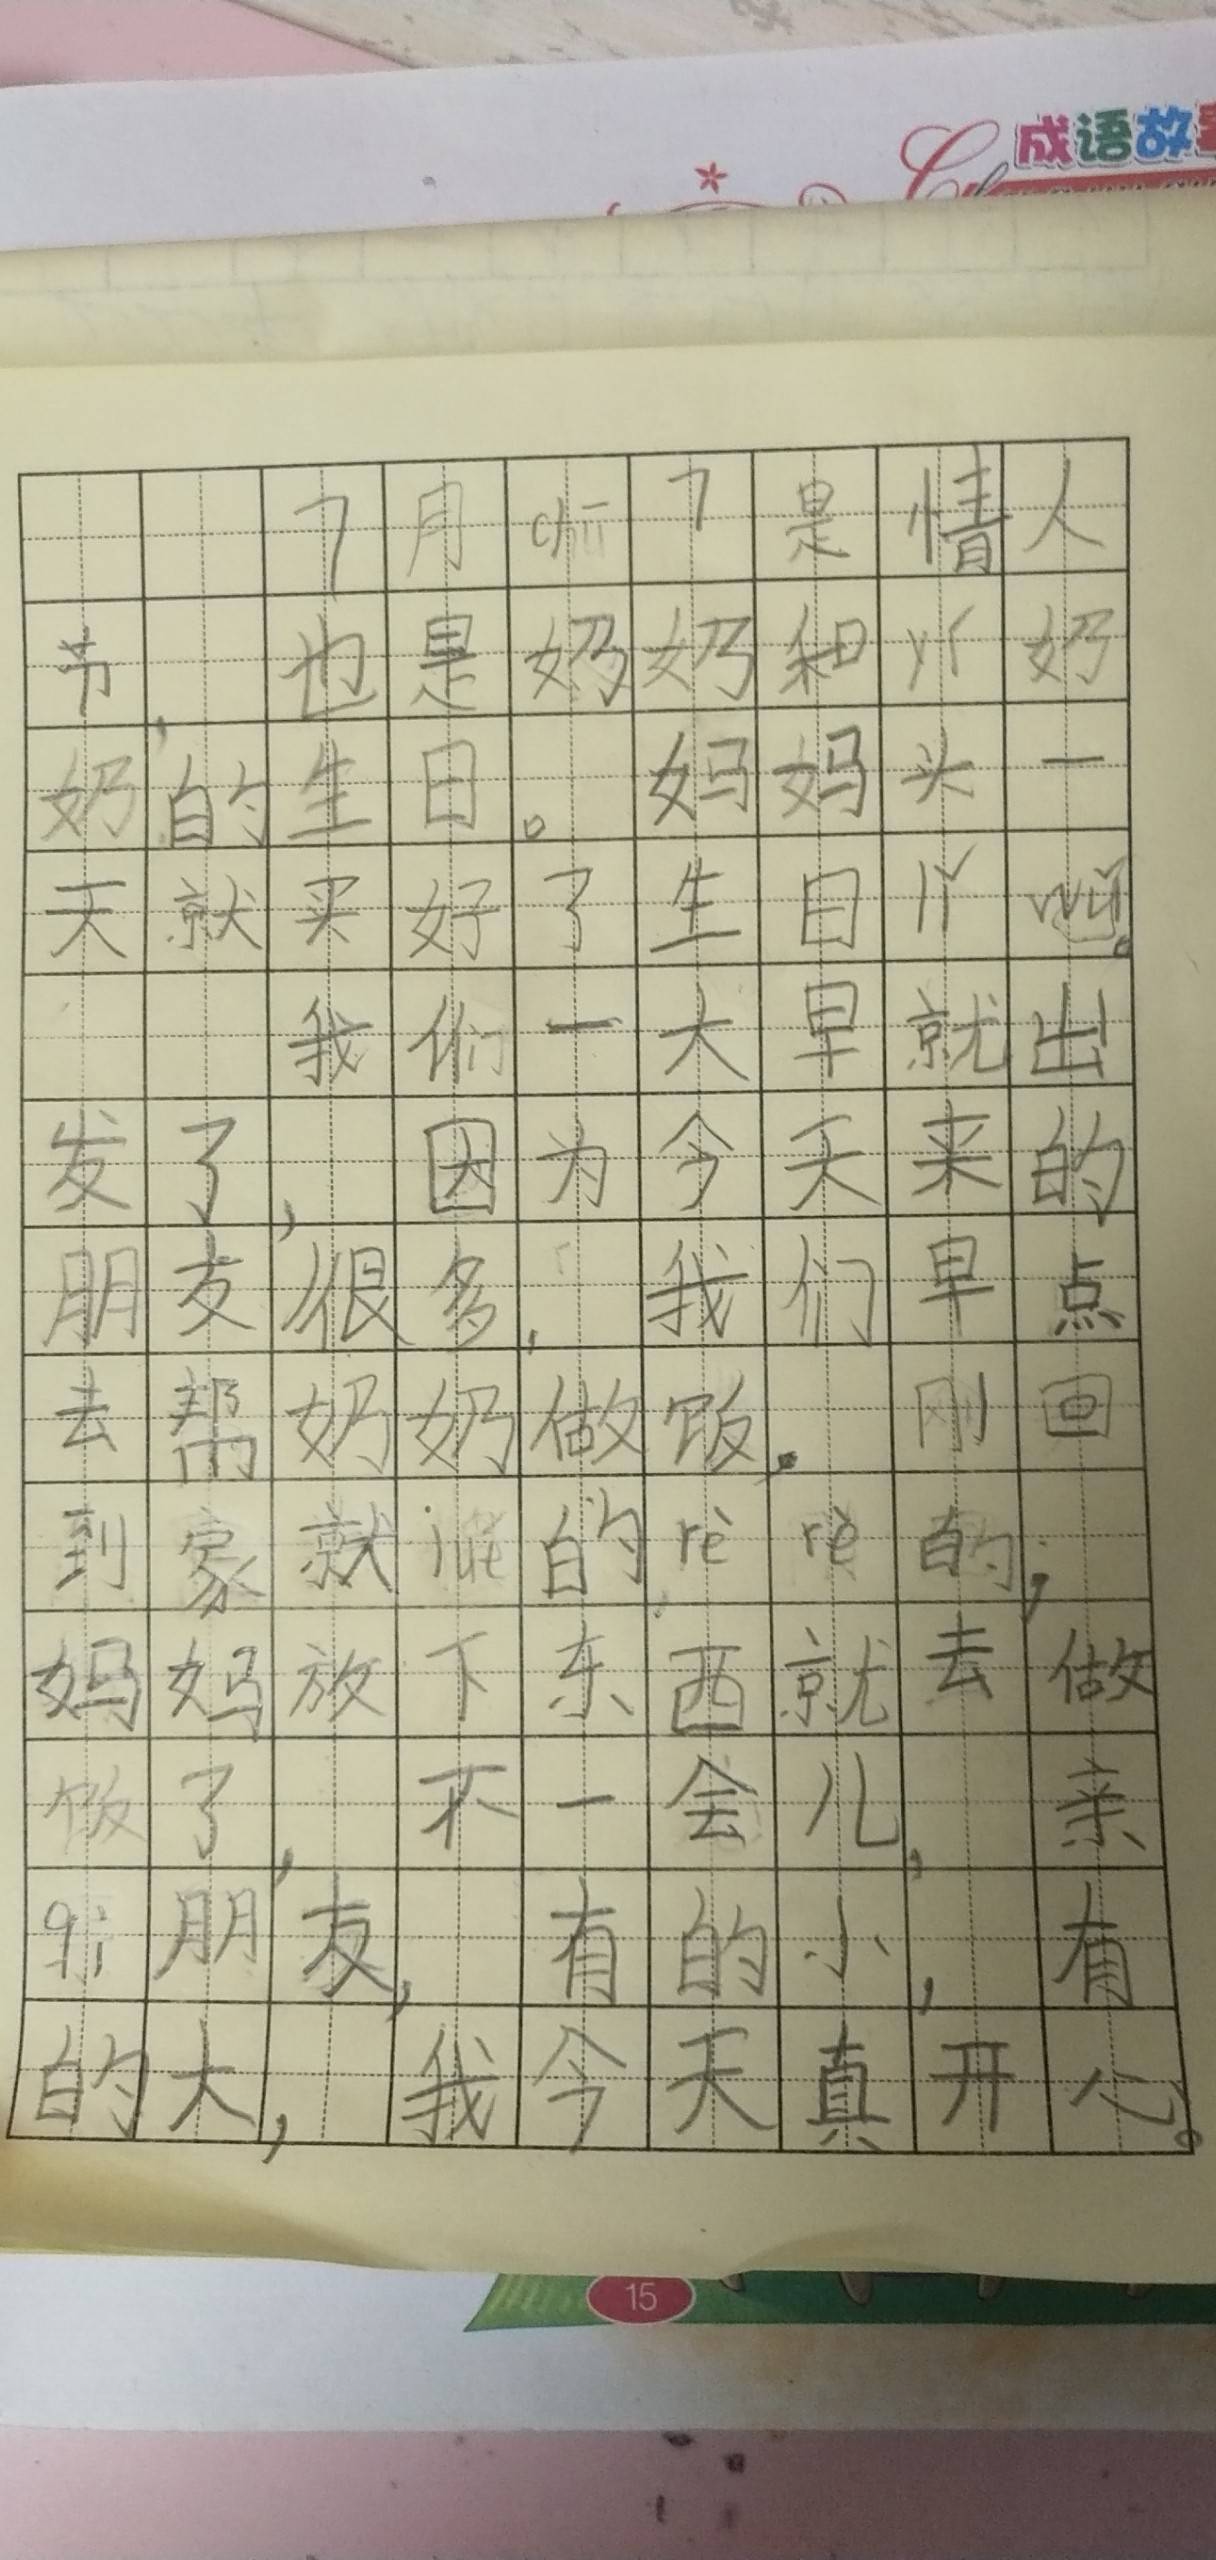 成语故事
7月 7是情人
节,也是奶奶和 奶
奶的生日。妈妈头一
天就买好了生日
我们一大早就出
发了,因为今天来的
朋友很多,我们早点
去帮奶奶做饭.刚回
到家就 的rè rè的,
妈妈放下东西就去做
饭了,不一会儿,亲
qi朋友,有的小,有
的大,我今天真开心。
15